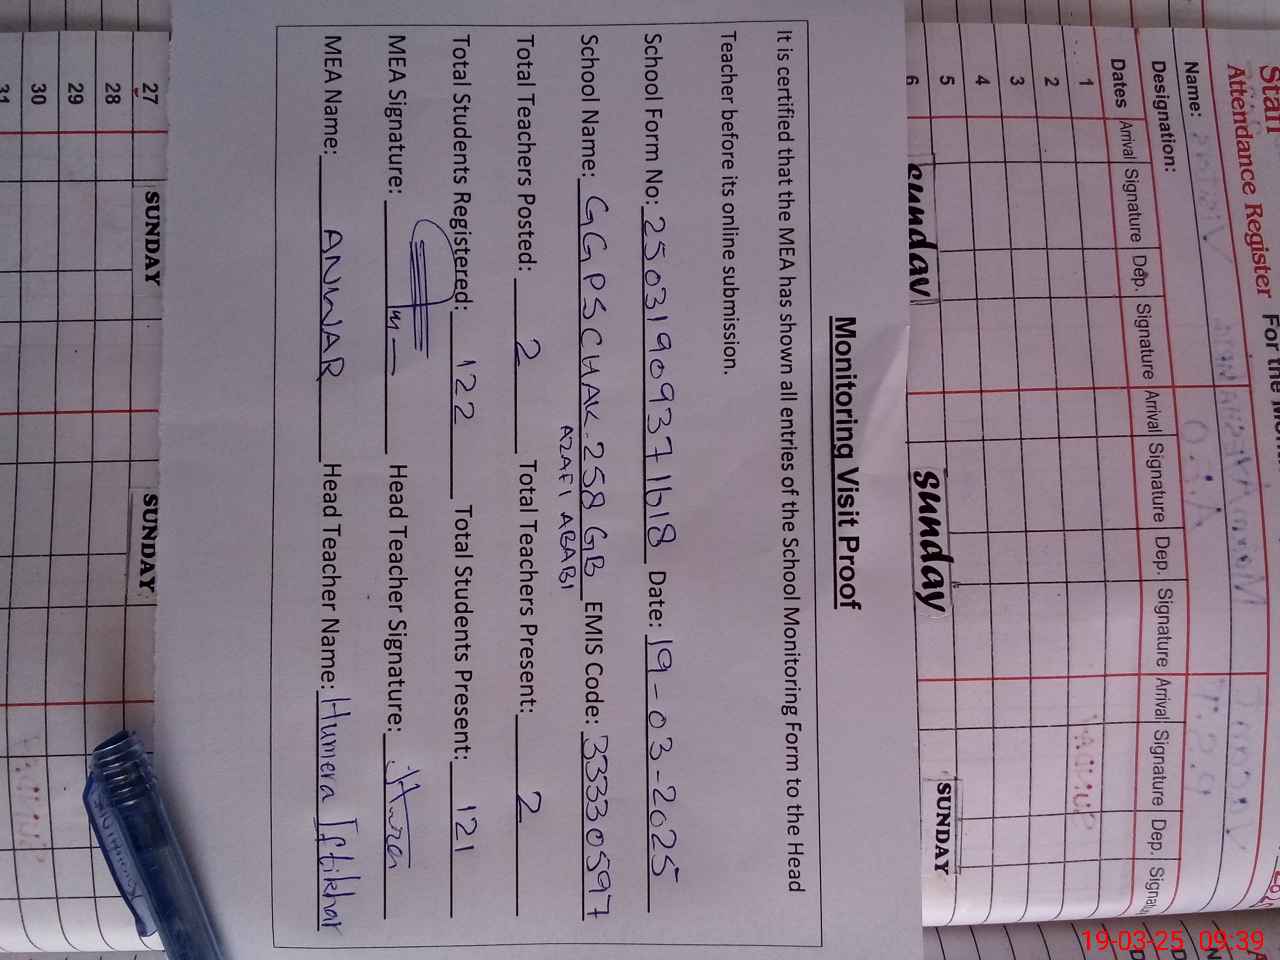 Monitoring Visit Proof
It is certified that the MEA has shown all entries of the School Monitoring Form to the Head
Teacher before its online submission.
School Form No: 25031909371618 Date: 19-03-2025
School Name: GGPS CHAK.258 GB EMIS Code: 33330597
AZAFI ABABI
Total Teachers Posted: 2 Total Teachers Present: 2
Total Students Registered: 122 Total Students Present: 121
MEA Signature: Head Teacher Signature:
MEA Name: ANWAR Head Teacher Name: Humera Iftikhar
Staff
Attendance Register For the
Name:
Designation:
Dates Arrival Signature Dep. Signature Arrival Signature Dep. Signature Arrival Signature Dep.
1
2
3
4
5 SUNDAY
6 sunday sunday
27 SUNDAY SUNDAY
28
29
30
31
19-03-25 09:39